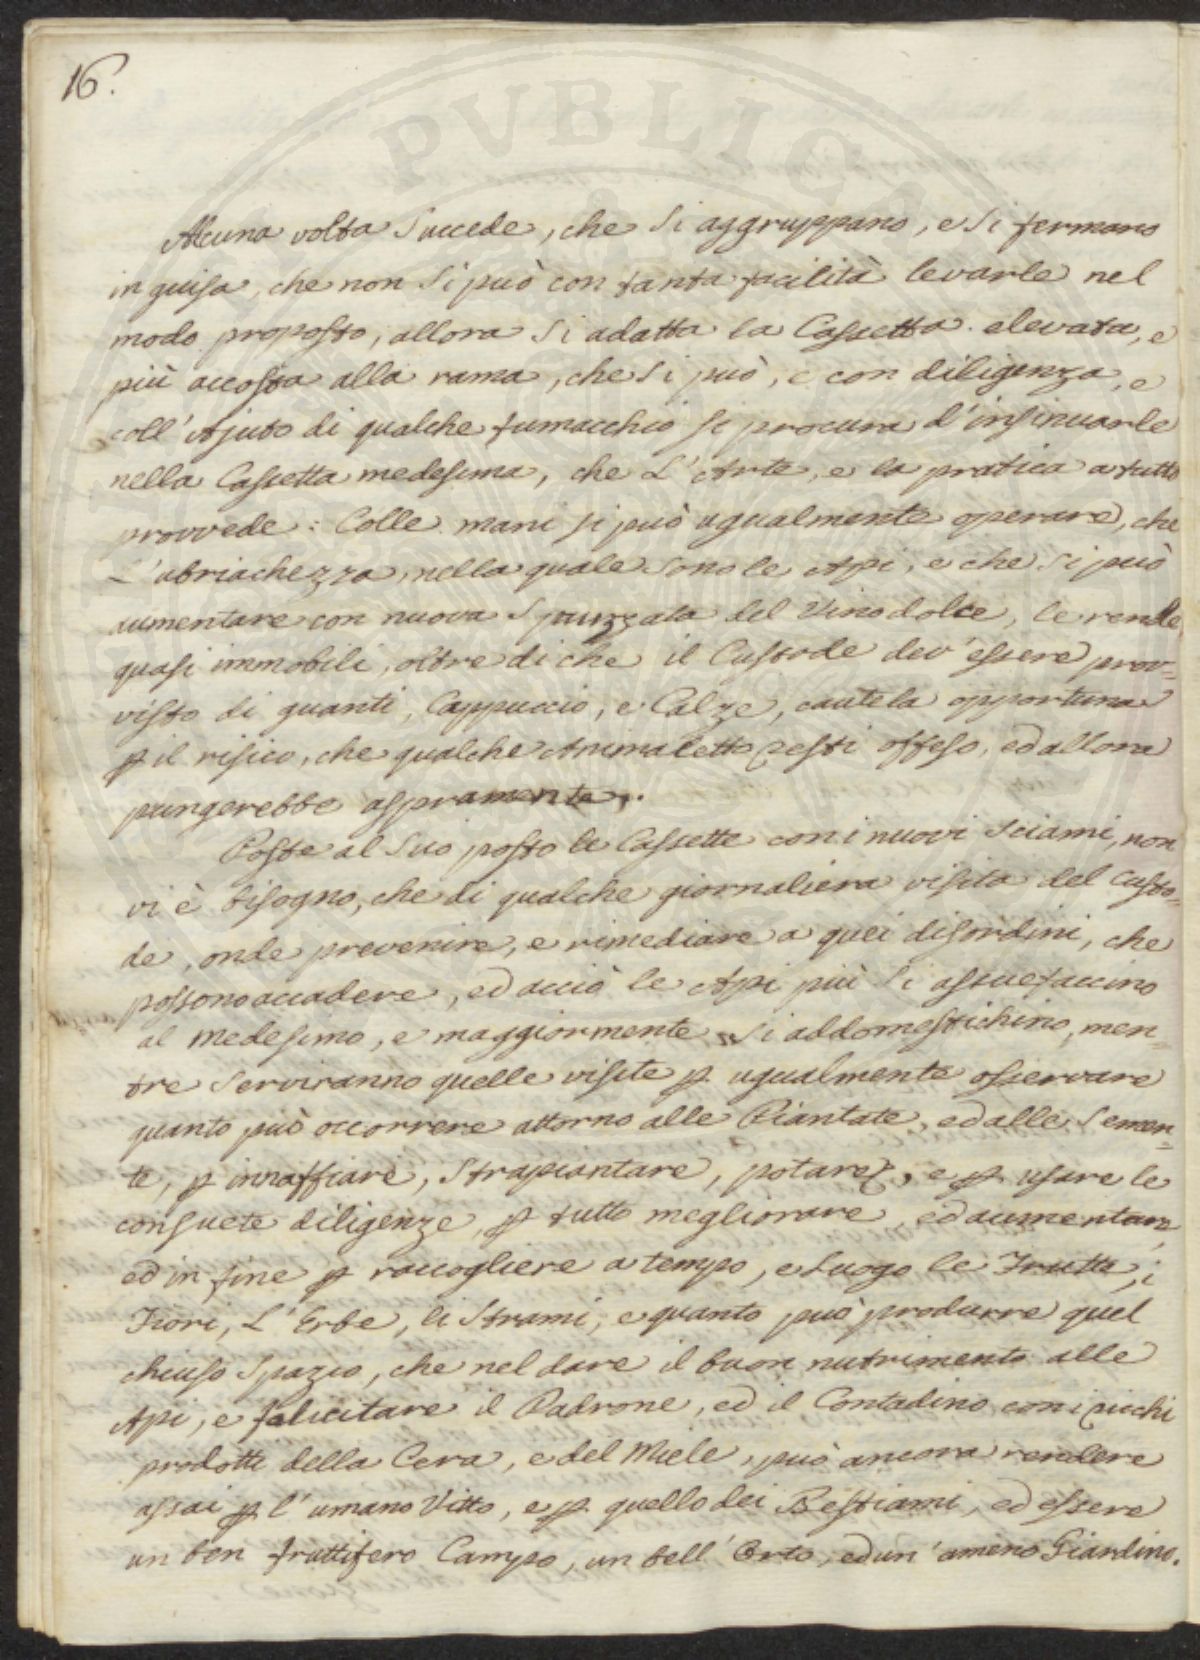 16.
PVBLICA
Alcuna volta Succede, che Si aggruppano, e Si fermano
in guisa, che non Si può con tanta facilità levarle nel
modo proposto, allora Si adatta la Cassetta elevata, e
più accosta alla rama, che Si può, e con diligenza, e
coll' Ajuto di qualche fumacchio si procura d'insinuarle
nella Cassetta medesima, che L'Arte, e la pratica a tutto
provvede: Colle mani si può ugualmente operare, che
L'ubriachezza, nella quale Sono le Api, e che Si può
aumentare con nuova Spruzzata del Vino dolce, le rende
quasi immobili, oltre di che il Custode dev'essere prov=
visto di guanti, Cappuccio, e Calze, cautela opportuna
p il risico, che qualche Animaletto resti offeso, ed allora
pungerebbe aspramente.
Poste al Suo posto le Cassette con i nuovi Sciami, non
vi è bisogno, che di qualche giornaliera visita del Custo=
de, onde prevenire, e rimediare a quei disordini, che
possono accadere, ed acciò le Api più Si assuefaccino
al medesimo, e maggiormente Si addomestichino, men=
tre Serviranno quelle visite p ugualmente osservare
quanto può occorrere attorno alle Piantate, ed alle Semen=
te, p innaffiare, Strapiantare, potare, e p usare le
consuete diligenze, p tutto megliorare, ed aumentare,
ed in fine p raccogliere a tempo, e luogo le Frutta, i
Fiori, L'Erbe, li Strami, e quanto può produrre quel
chiuso Spazio, che nel dare il buon nutrimento alle
Api, e felicitare il Padrone, ed il Contadino con i ricchi
prodotti della Cera, e del Miele, può ancora rendere
assai p l'umano Vitto, e p quello dei Bestiami, ed essere
un ben fruttifero Campo, un bell'Orto, ed un'ameno Giardino.